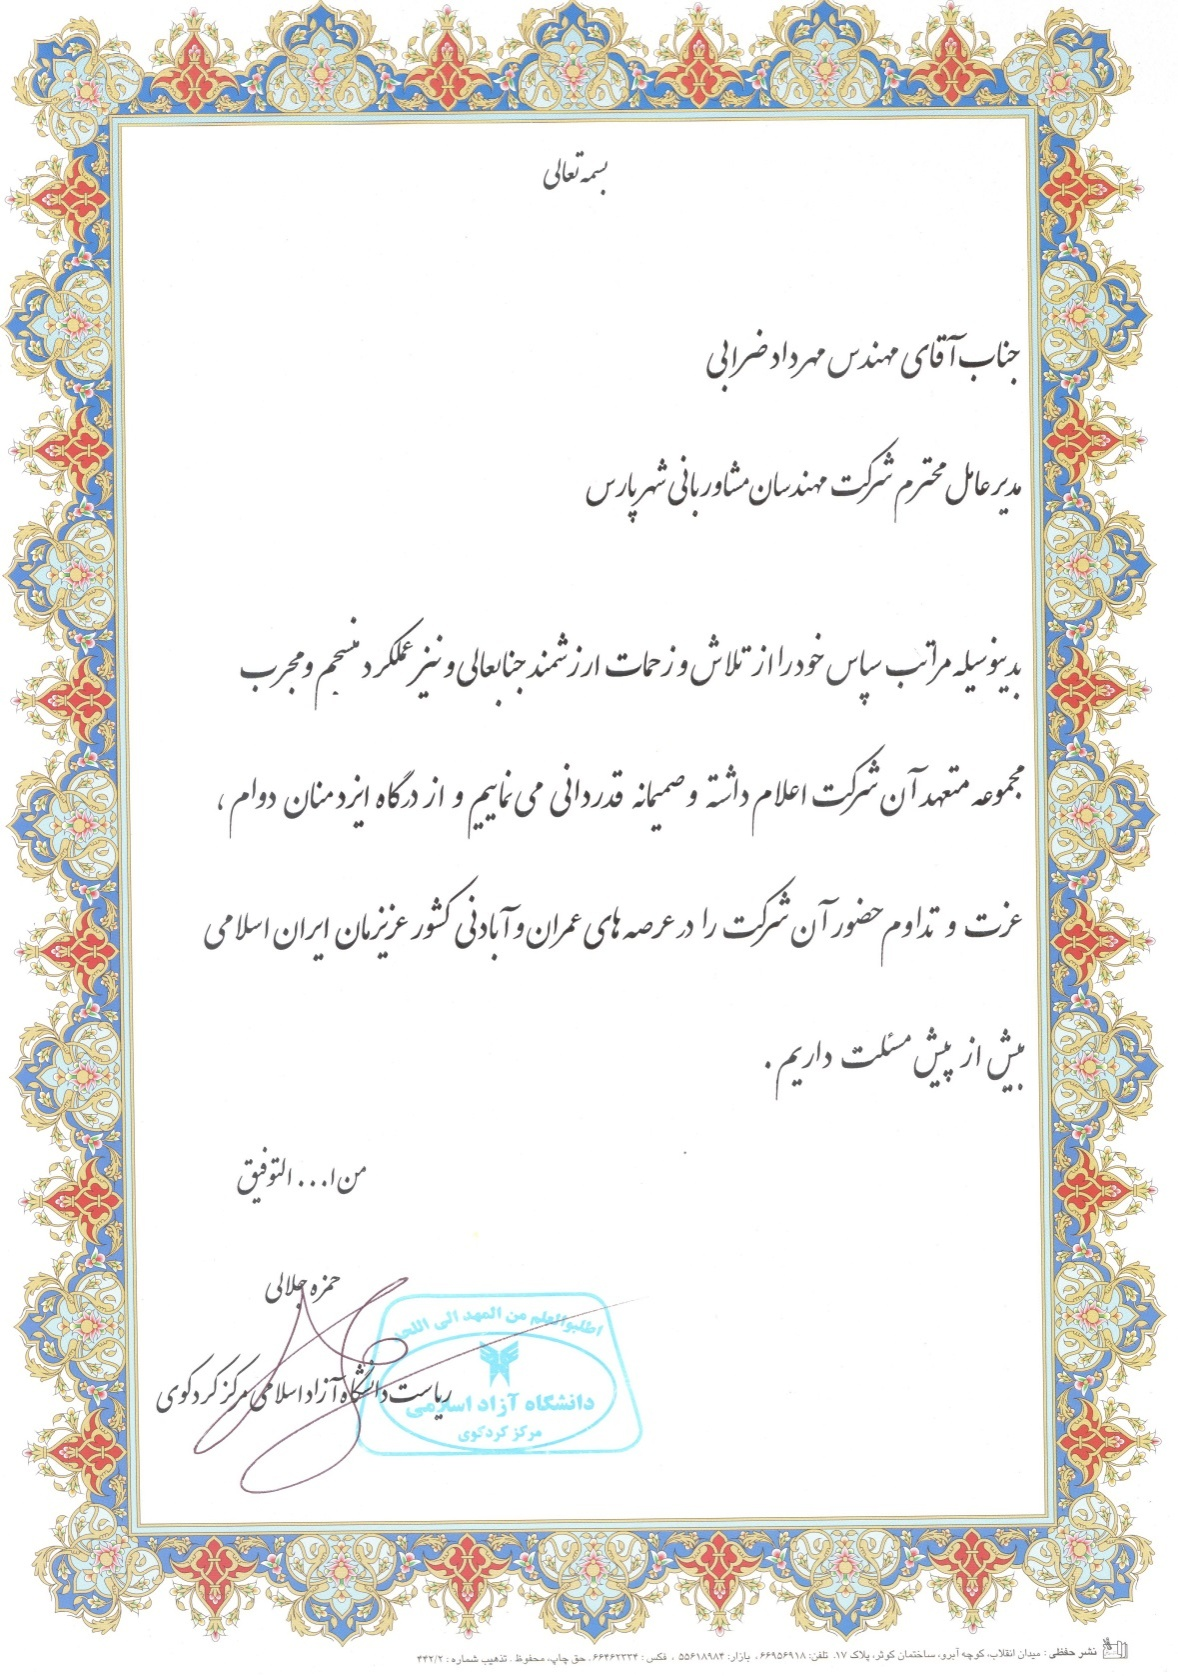 بسمه تعالی
جناب آقای مهندس مهرداد ضرابی
مدیر عامل محترم شرکت مهندسان مشاور بانی شهر پارس
بدینوسیله مراتب سپاس خود را از تلاش و زحمات ارزشمند جنابعالی و نیز عملکرد منسجم و مجرب
مجموعه متعهد آن شرکت اعلام داشته و صمیمانه قدردانی می نماییم و از درگاه ایزد منان دوام ،
عزت و تداوم حضور آن شرکت را در عرصه های عمران و آبادنی کشور عزیزمان ایران اسلامی
بیش از پیش مسئلت داریم .
من ا... التوفیق
حمزه جلالی
ریاست دانشگاه آزاد اسلامی مرکز کردکوی
اطلبوالعلم من المهد الی اللحد
دانشگاه آزاد اسلامی
مرکز کردکوی
نشر حفظی : میدان انقلاب، کوچه آبرو، ساختمان کوثر، پلاک ۱۷. تلفن: ۶۶۹۵۶۹۱۸ ، بازار: ۵۵۶۱۸۹۸۴ ، فکس : ۶۶۴۶۲۲۳۴ . حق چاپ، محفوظ . تذهیب شماره : ۴۴۲/۲